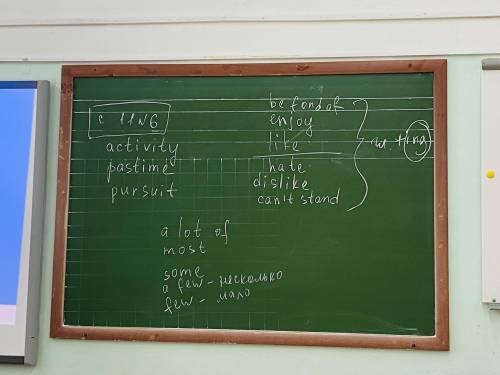 с 11 № 6
activity
pastime
pursuit
be fond of
enjoy
like
hate
dislike
can't stand
+ing
a lot of
most
some
a few - несколько
few - мало